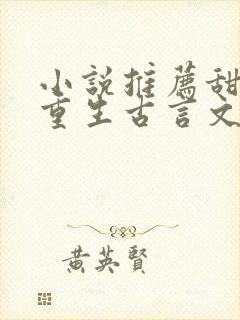 小說推薦甜
重生古言文
黃英賢